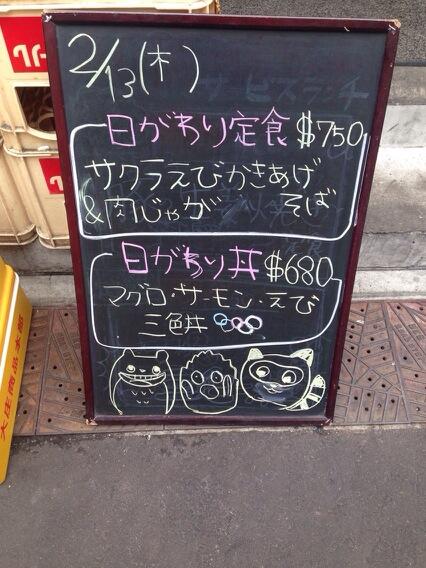 2/13(木)
日がわり定食 $750
サクラえびかきあげ
&肉じゃが そば
日がわり丼 $680
マグロ・サーモン・えび
三色丼